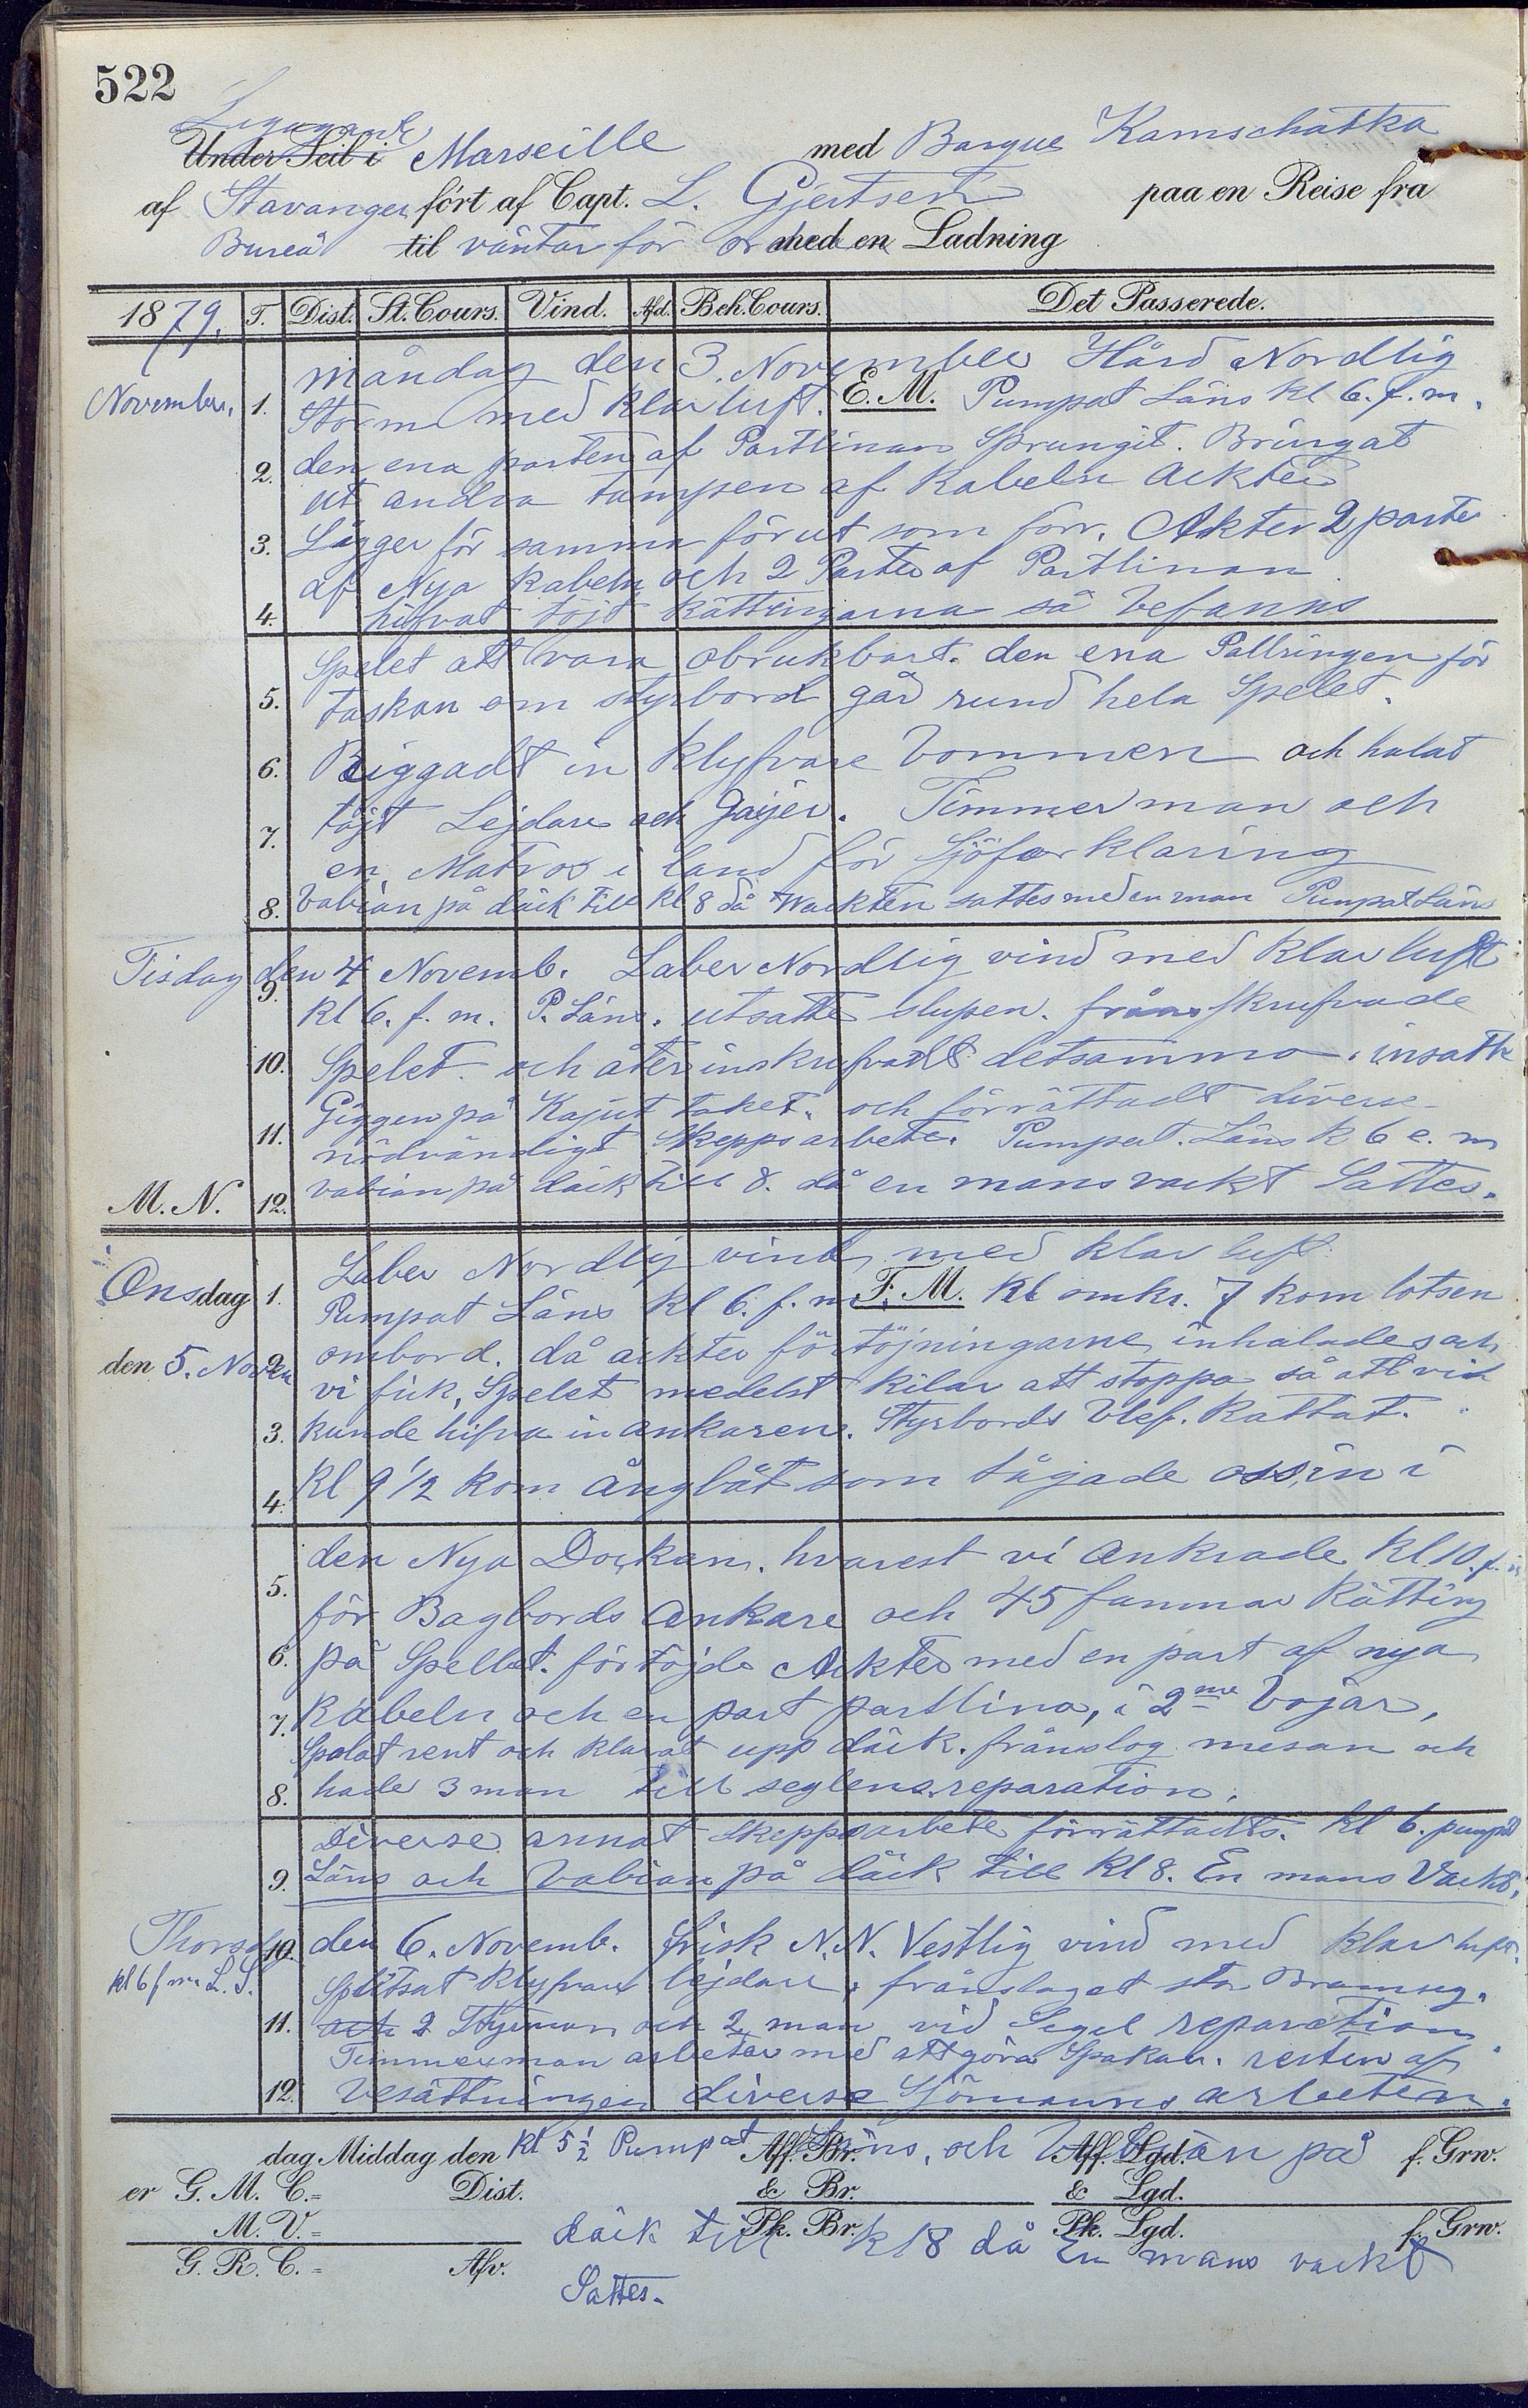 522
Liggande
Under Seil i Marseille med Barque Kamschatka
af Stavanger fört af Capt. L. Gjertsen paa en Reise fra
Bureå til väntar för order med en Ladning
1879. T. Dist. St. Cours. Vind. Afd. Beh. Cours. Det Passerede.
måndag den 3. November Hård Nordlig
November. 1. Storm med klar luft. E. M. Pumpat Läns kl 6. f. m.
2. den ena parten af Partlinan Sprungit. Bringat
ut andra tampen af Kabeln ackter
3. Lägger för samma förut som förr. Akter 2 parter
af Nya Kabeln och 2 Parter af Partlinan.
4. hifvat töjt Kättingarna så befanns
Spelet att vara obrukbart. den ena Pallringen för
5. taskan om styrbord går rund hela Spelet.
6. Riggadt in Klyfvare bommen och halat
7. töjt Lejdare och Gajer. Timmerman och
en Matros i land för Sjöforklaring
8. Vabian på däck till kl 8 då Wackten sattes med en man Pumpat Läns
Tisdag den 4 Novemb. Laber Nordlig vind med Klar luft
9. kl 6. f. m. P. Läns. utsatte slupen. från skrufvade
10. Spelet och åter inskrufvadt detsamma. insatte
Giggen på Kajut taket. och förrättadt diverse
11. nödvändigt Skeppsarbete. Pumpat. Läns k 6 e. m
M. N. 12. vabian på däck till 8. då en mans vackt Sattes.
Onsdag 1. Laber Nordlig vind med klar luft
Pumpat Läns kl 6. f. m. F. M. Kl omkr. 7 kom lotsen
den 5. Novem 2. ombord. då ackter förtöjningarne inhalades och
vi fick, Spelet medelst kilar att stoppa så att vi
3. kunde hifva in ankaren. Styrbords blef. Kattat.
4. Kl 9 1/2 kom Ångbåt som tågade oss in i
den Nya Dockan. hvarest vi Ankrade Kl 10. f. m
5. för Bagbords Ankare och 45 famnar Kätting
6. på Spellet. förtöjde Ackter med en part af nya
7. Kabeln och en part partlina, i 2ne bojar,
Spolat rent och klarat upp däck. frånslog mesan och
8. hade 3 man till seglens reparation.
Diverse annat skeppsarbete förrättadts. Kl 6. pumpad
9. Läns och Vabian på däck till Kl 8. En mans Vackt,
Thorsdag 10. den 6. Novemb. Frisk N. N. Vestlig vind med klar luft.
kl 6 f m L. S. Splitsat Klyfvare lejdare, frånslaget stor Bramseg.
11. och 2 Styrman och 2 man vid Segel reparation
Timmerman arbetar med att göra Spakar. resten af
12. besättningen diverse Sjömanns arbeten.
dag Middag den kl 5 1/2 Pumpat Läns, och Vabian på Aff. Br. Aff. Lgd. f. Grw.
er G. M. C.= Dist. & Br. & Lgd.
M. V.= däck till kl 8 då En mans vackt Pk. Br. Pk. Lgd. f. Grw.
G. R. C.= Afv.
Sattes.